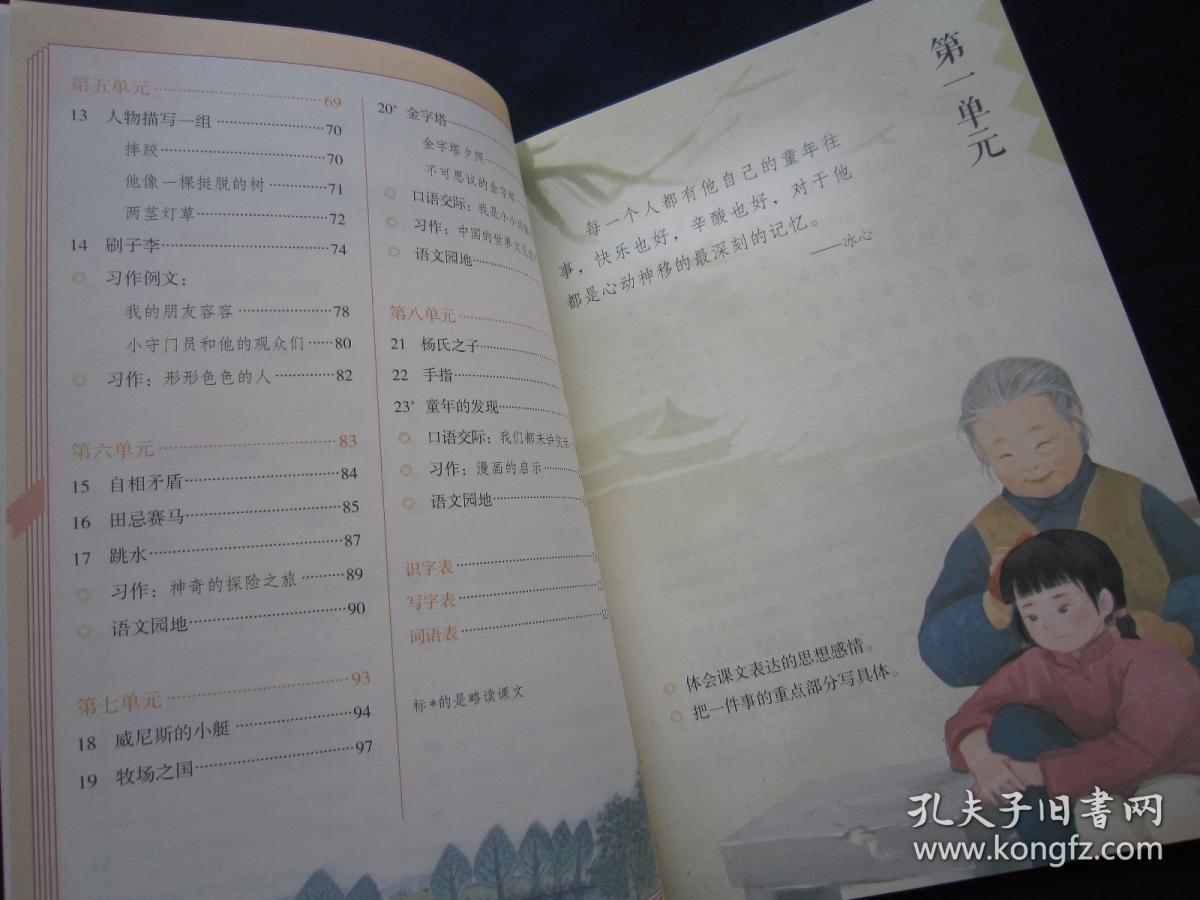 第五单元 69
13 人物描写一组 70
摔跤 70
他像一棵挺脱的树 71
两茎灯草 72
14 刷子李 74
习作例文：
我的朋友容容 78
小守门员和他的观众们 80
习作：形形色色的人 82
第六单元 83
15 自相矛盾 84
16 田忌赛马 85
17 跳水 87
习作：神奇的探险之旅 89
语文园地 90
第七单元 93
18 威尼斯的小艇 94
19 牧场之国 97
20* 金字塔
金字塔夕照
不可思议的金字塔
口语交际：我是小小讲解
习作：中国的世界文化遗产
语文园地
第八单元
21 杨氏之子
22 手指
23* 童年的发现
口语交际：我们都来讲笑话
习作：漫画的启示
语文园地
识字表
写字表
词语表
标*的是略读课文
第一单元
每一个人都有他自己的童年往
事，快乐也好，辛酸也好，对于他
都是心动神移的最深刻的记忆。
——冰心
体会课文表达的思想感情。
把一件事的重点部分写具体。
孔夫子旧书网
www.kongfz.com